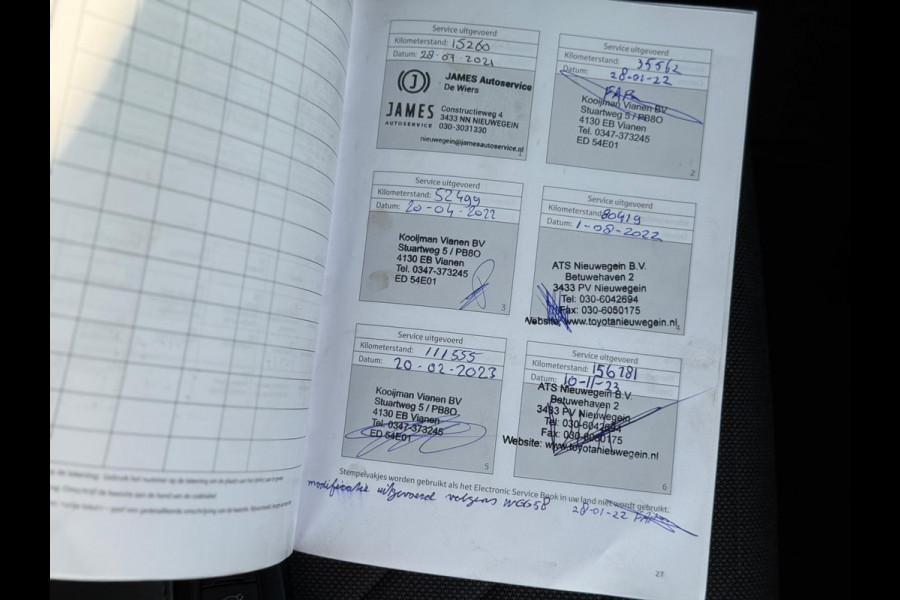 Service uitgevoerd
Kilometerstand: 15260
Datum: 28-07-2021
JAMES Autoservice
De Wiers
JAMES
AUTOSERVICE
Constructieweg 4
3433 NN NIEUWEGEIN
030-3031330
nieuwegein@jamesautoservice.nl
1
Service uitgevoerd
Kilometerstand: 35562
Datum: 28-01-22
Kooijman Vianen BV
Stuartweg 5 / PB8O
4130 EB Vianen
Tel. 0347-373245
ED 54E01
2
Service uitgevoerd
Kilometerstand: 52499
Datum: 20-04-2022
Kooijman Vianen BV
Stuartweg 5 / PB8O
4130 EB Vianen
Tel. 0347-373245
ED 54E01
3
Service uitgevoerd
Kilometerstand: 80419
Datum: 1-08-2022
ATS Nieuwegein B.V.
Betuwehaven 2
3433 PV Nieuwegein
Tel: 030-6042694
Fax: 030-6050175
Website: www.toyotanieuwegein.nl
4
Service uitgevoerd
Kilometerstand: 111555
Datum: 20-02-2023
Kooijman Vianen BV
Stuartweg 5 / PB8O
4130 EB Vianen
Tel. 0347-373245
ED 54E01
5
Service uitgevoerd
Kilometerstand: 156781
Datum: 10-11-23
ATS Nieuwegein B.V.
Betuwehaven 2
3433 PV Nieuwegein
Tel: 030-6042694
Fax: 030-6050175
Website: www.toyotanieuwegein.nl
6
Stempelvakjes worden gebruikt als het Electronic Service Book in uw land niet wordt gebruikt.
modificatie uitgevoerd volgens WGG58 28-01-22
27